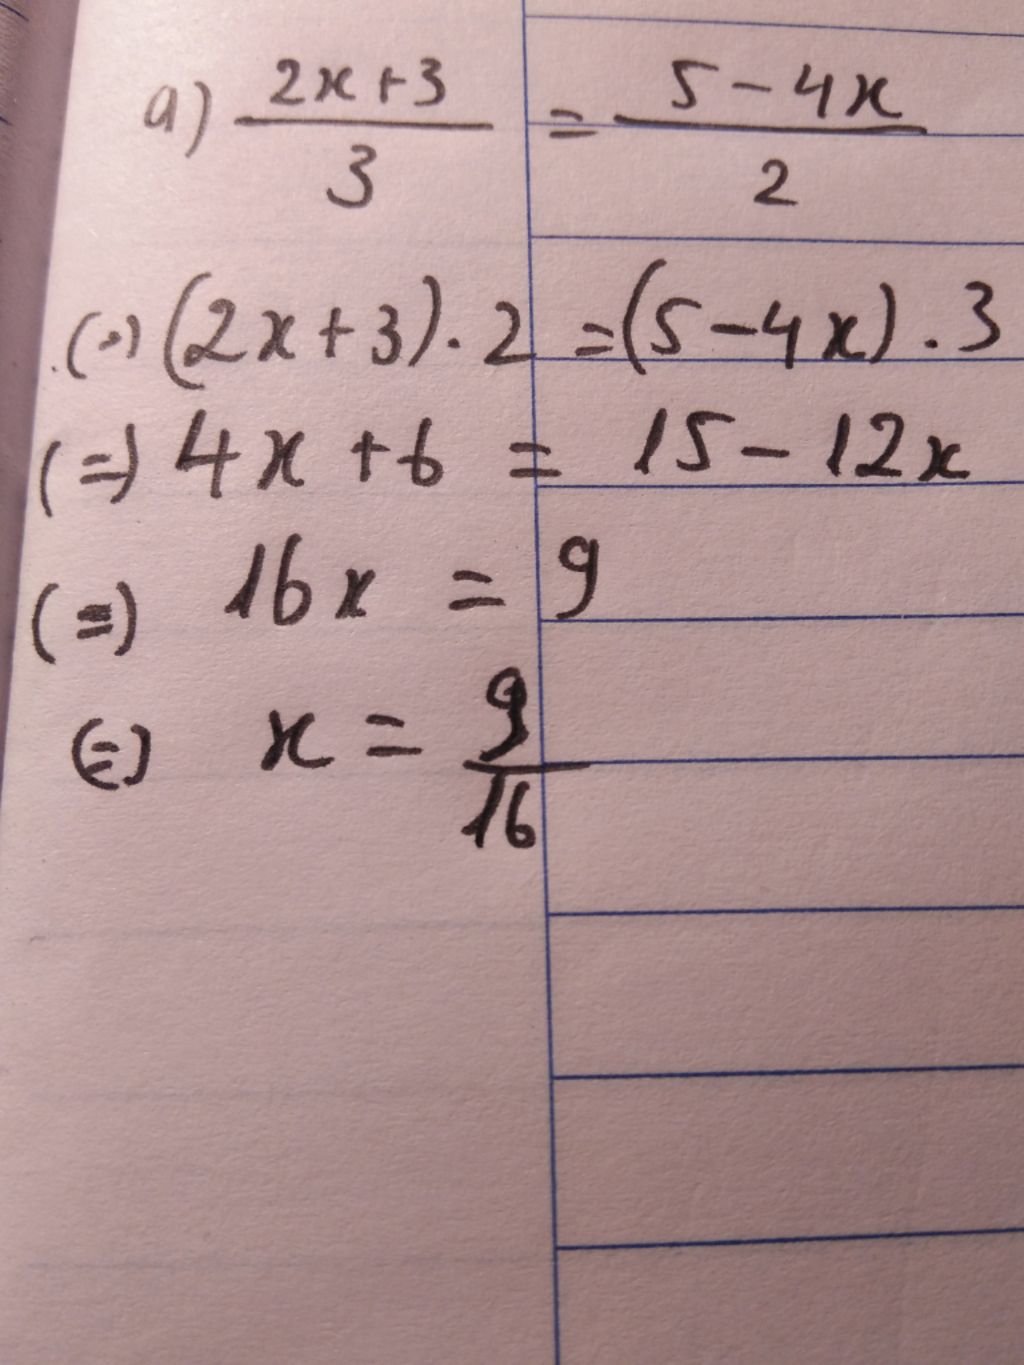 a) (2x+3)/3 = (5-4x)/2
(=) (2x+3).2 = (5-4x).3
(=) 4x+6 = 15-12x
(=) 16x = 9
(=) x = 9/16